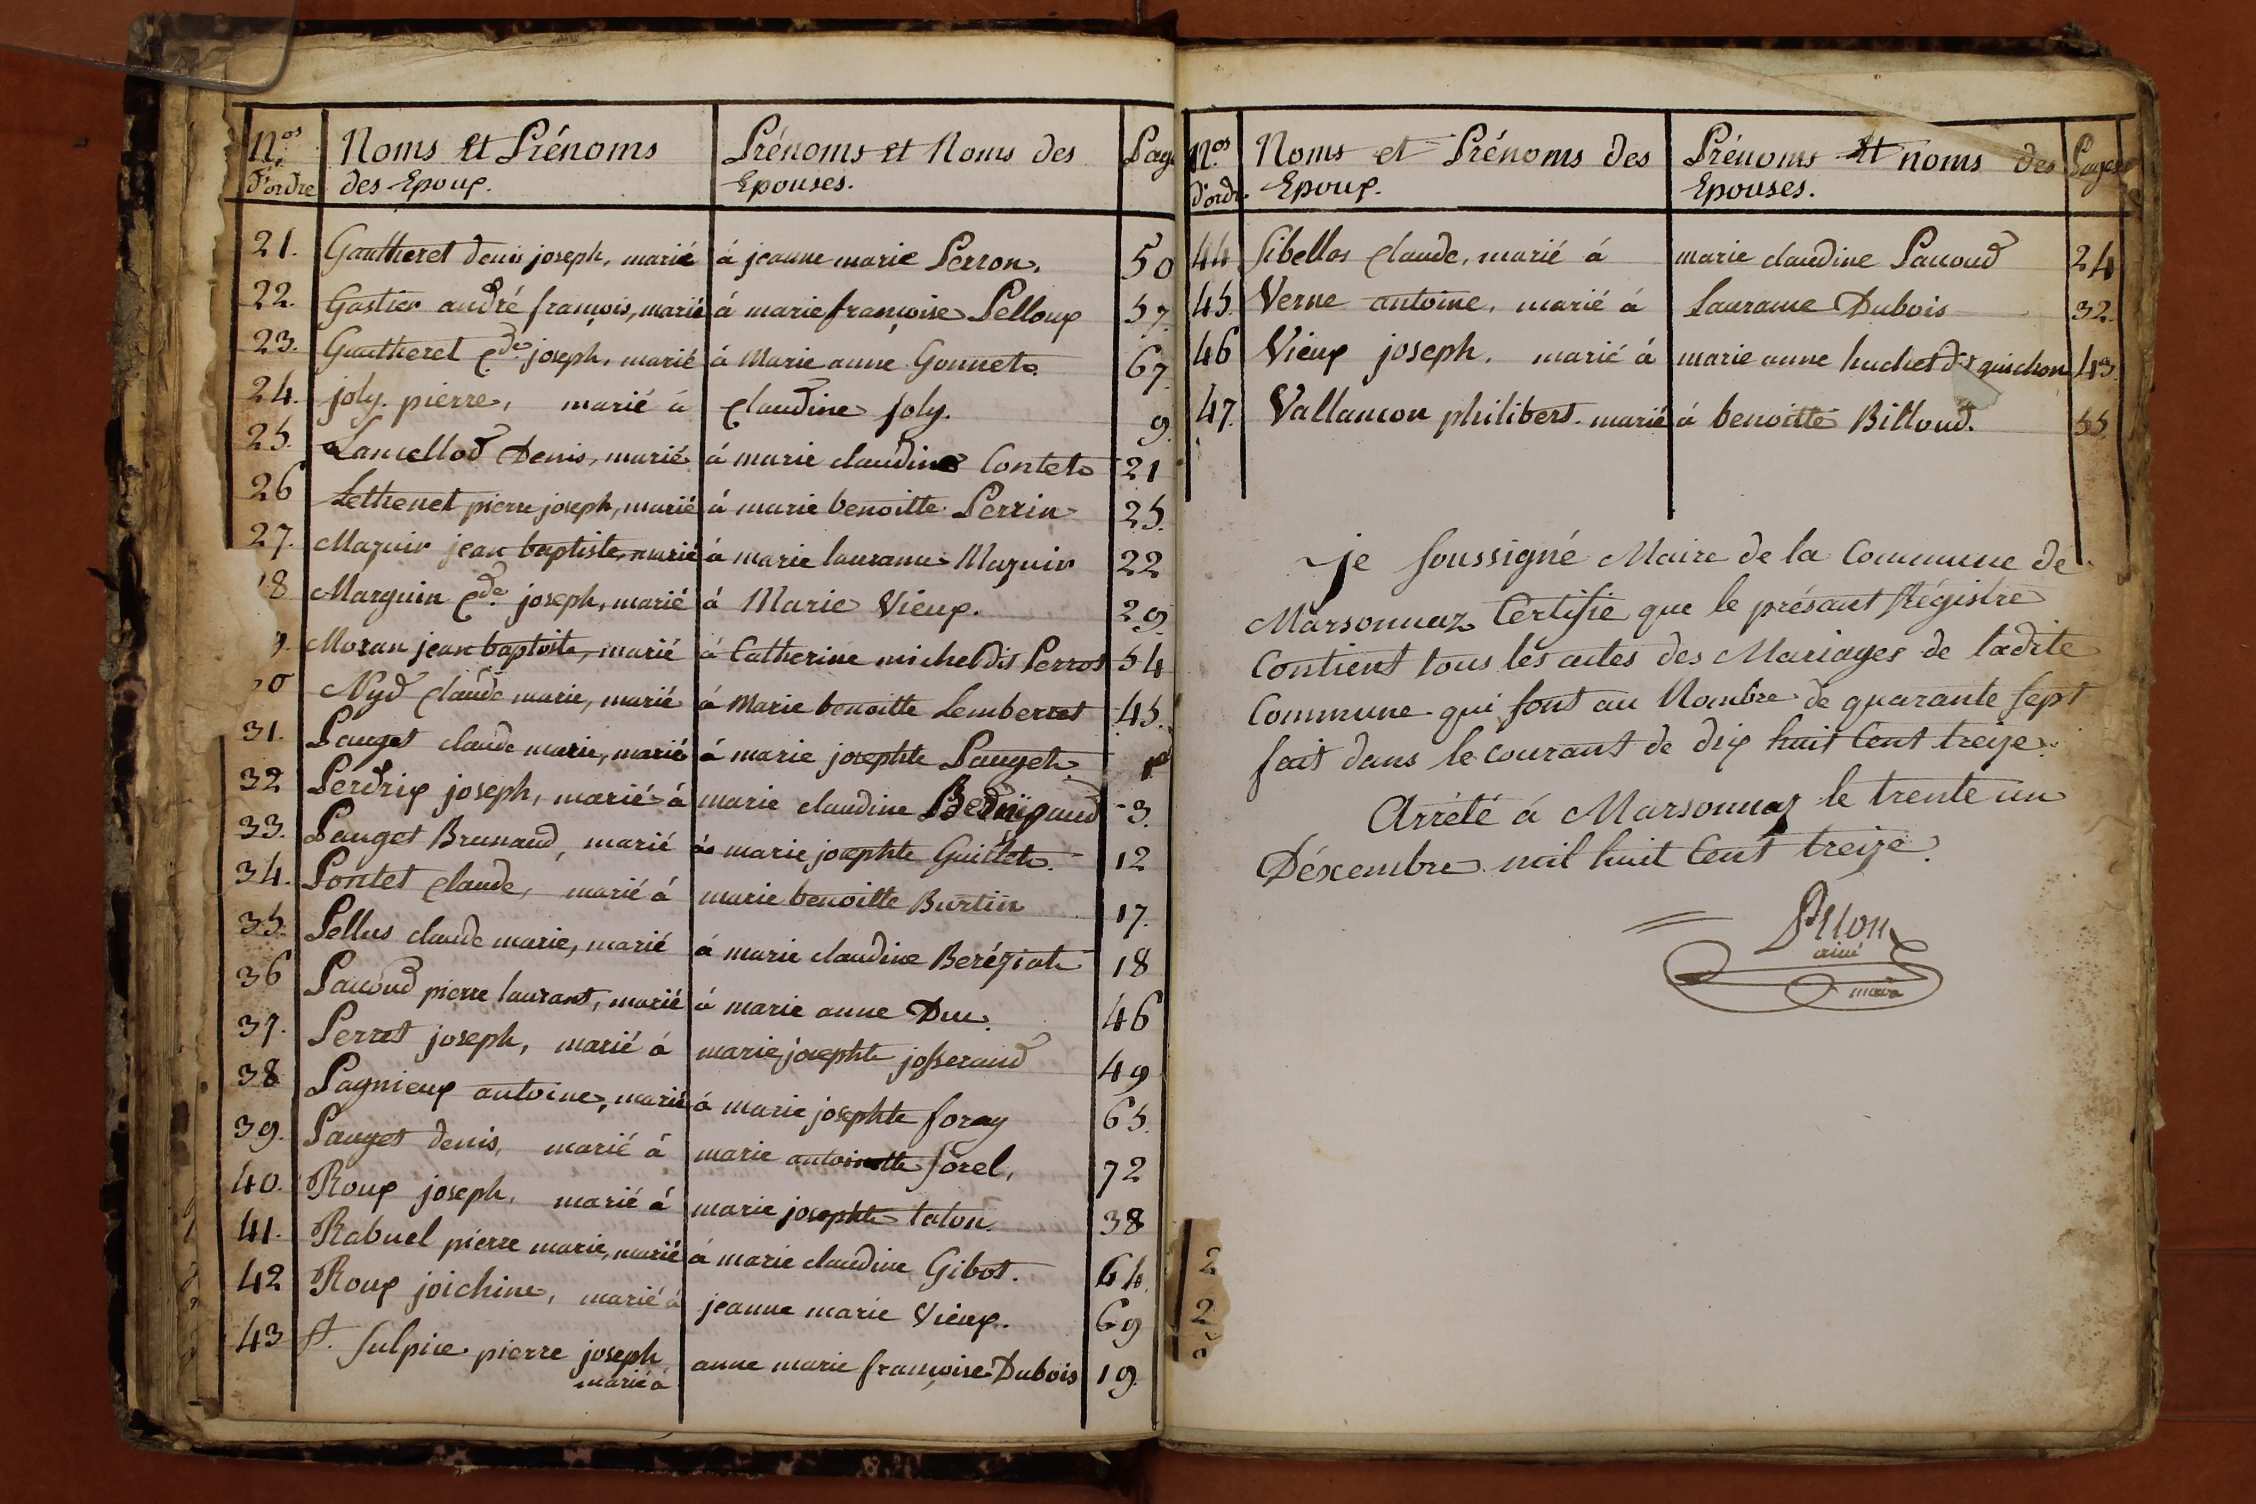 N.os Noms et Prénoms Prénoms et Noms des Pag
d'ordre des Epoux. Epouses.
21. Gautheret denis joseph, marié à jeanne marie Perron. 50
22. Gastier andré françois, marié à marie françoise Pelloux 57.
23. Gautheret Cde joseph, marié à Marie anne Gonnet 67.
24. joly pierre, marié à claudine joly. 9.
25. Lancellod Denis, marié à marie claudine Contet 21
26 Lethenet pierre joseph, marié à marie benoitte Perrin 25.
27. Mazuir jean baptiste, marié à marie lauranne Mazuir 22
8 Marguin Cde joseph, marié à Marie Vieux. 29.
9. Moran jean baptiste, marié à Catherine michel dit Perrot 54
0 Nyd claude marie, marié à Marie benoitte Lemberret 45.
31. Pauget claude marie, marié à marie josephte Pauget
32 Perdrix joseph, marié à marie claudine 3.
33. Pauget Brunand, marié à marie josephte Guillet 12
34. Pontet claude, marié à marie benoitte Burtin 17.
35. Pellus claude marie, marié à marie claudine Beréziat 18
36 Pacoud pierre laurant, marié à marie anne Duc. 46
37. Perret joseph, marié à marie josephte josserand 49
38 Pagnieux antoine, marié à marie josephte foray 65.
39. Pauget denis, marié à marie antoinette forel, 72
40. Roux joseph, marié à marie josephte talon. 38
41. Rabuel pierre marie, marié à marie claudine Gibot. 64.
42 Roux joichine, marié à jeanne marie Vieux. 69
43 St. Sulpice pierre joseph anne marie françoise Dubois 19.
marié à
N.os Noms et Prénoms des Prénoms et noms des Pages
d'ordre Epoux. Epouses.
44 Sibellas claude, marié à marie claudine Pacoud 24
45. Verne antoine, marié à Lauranne Dubois 32.
46 Vieux joseph, marié à marie anne huchet dit guichon 43.
47. Vallancon philibert, marié à benoitte Billoud. 55.
je soussigné Maire de la Commune de
Marsonnaz Certifie que le présant Régistre
Contient tous les actes des Mariages de ladite
Commune qui sont au Nombre de quarante sept
fait dans le courant de dix huit Cent treize.
Arrété à Marsonnaz le trente un
Déxembre mil huit Cent treize.
ainé
maire
2
2